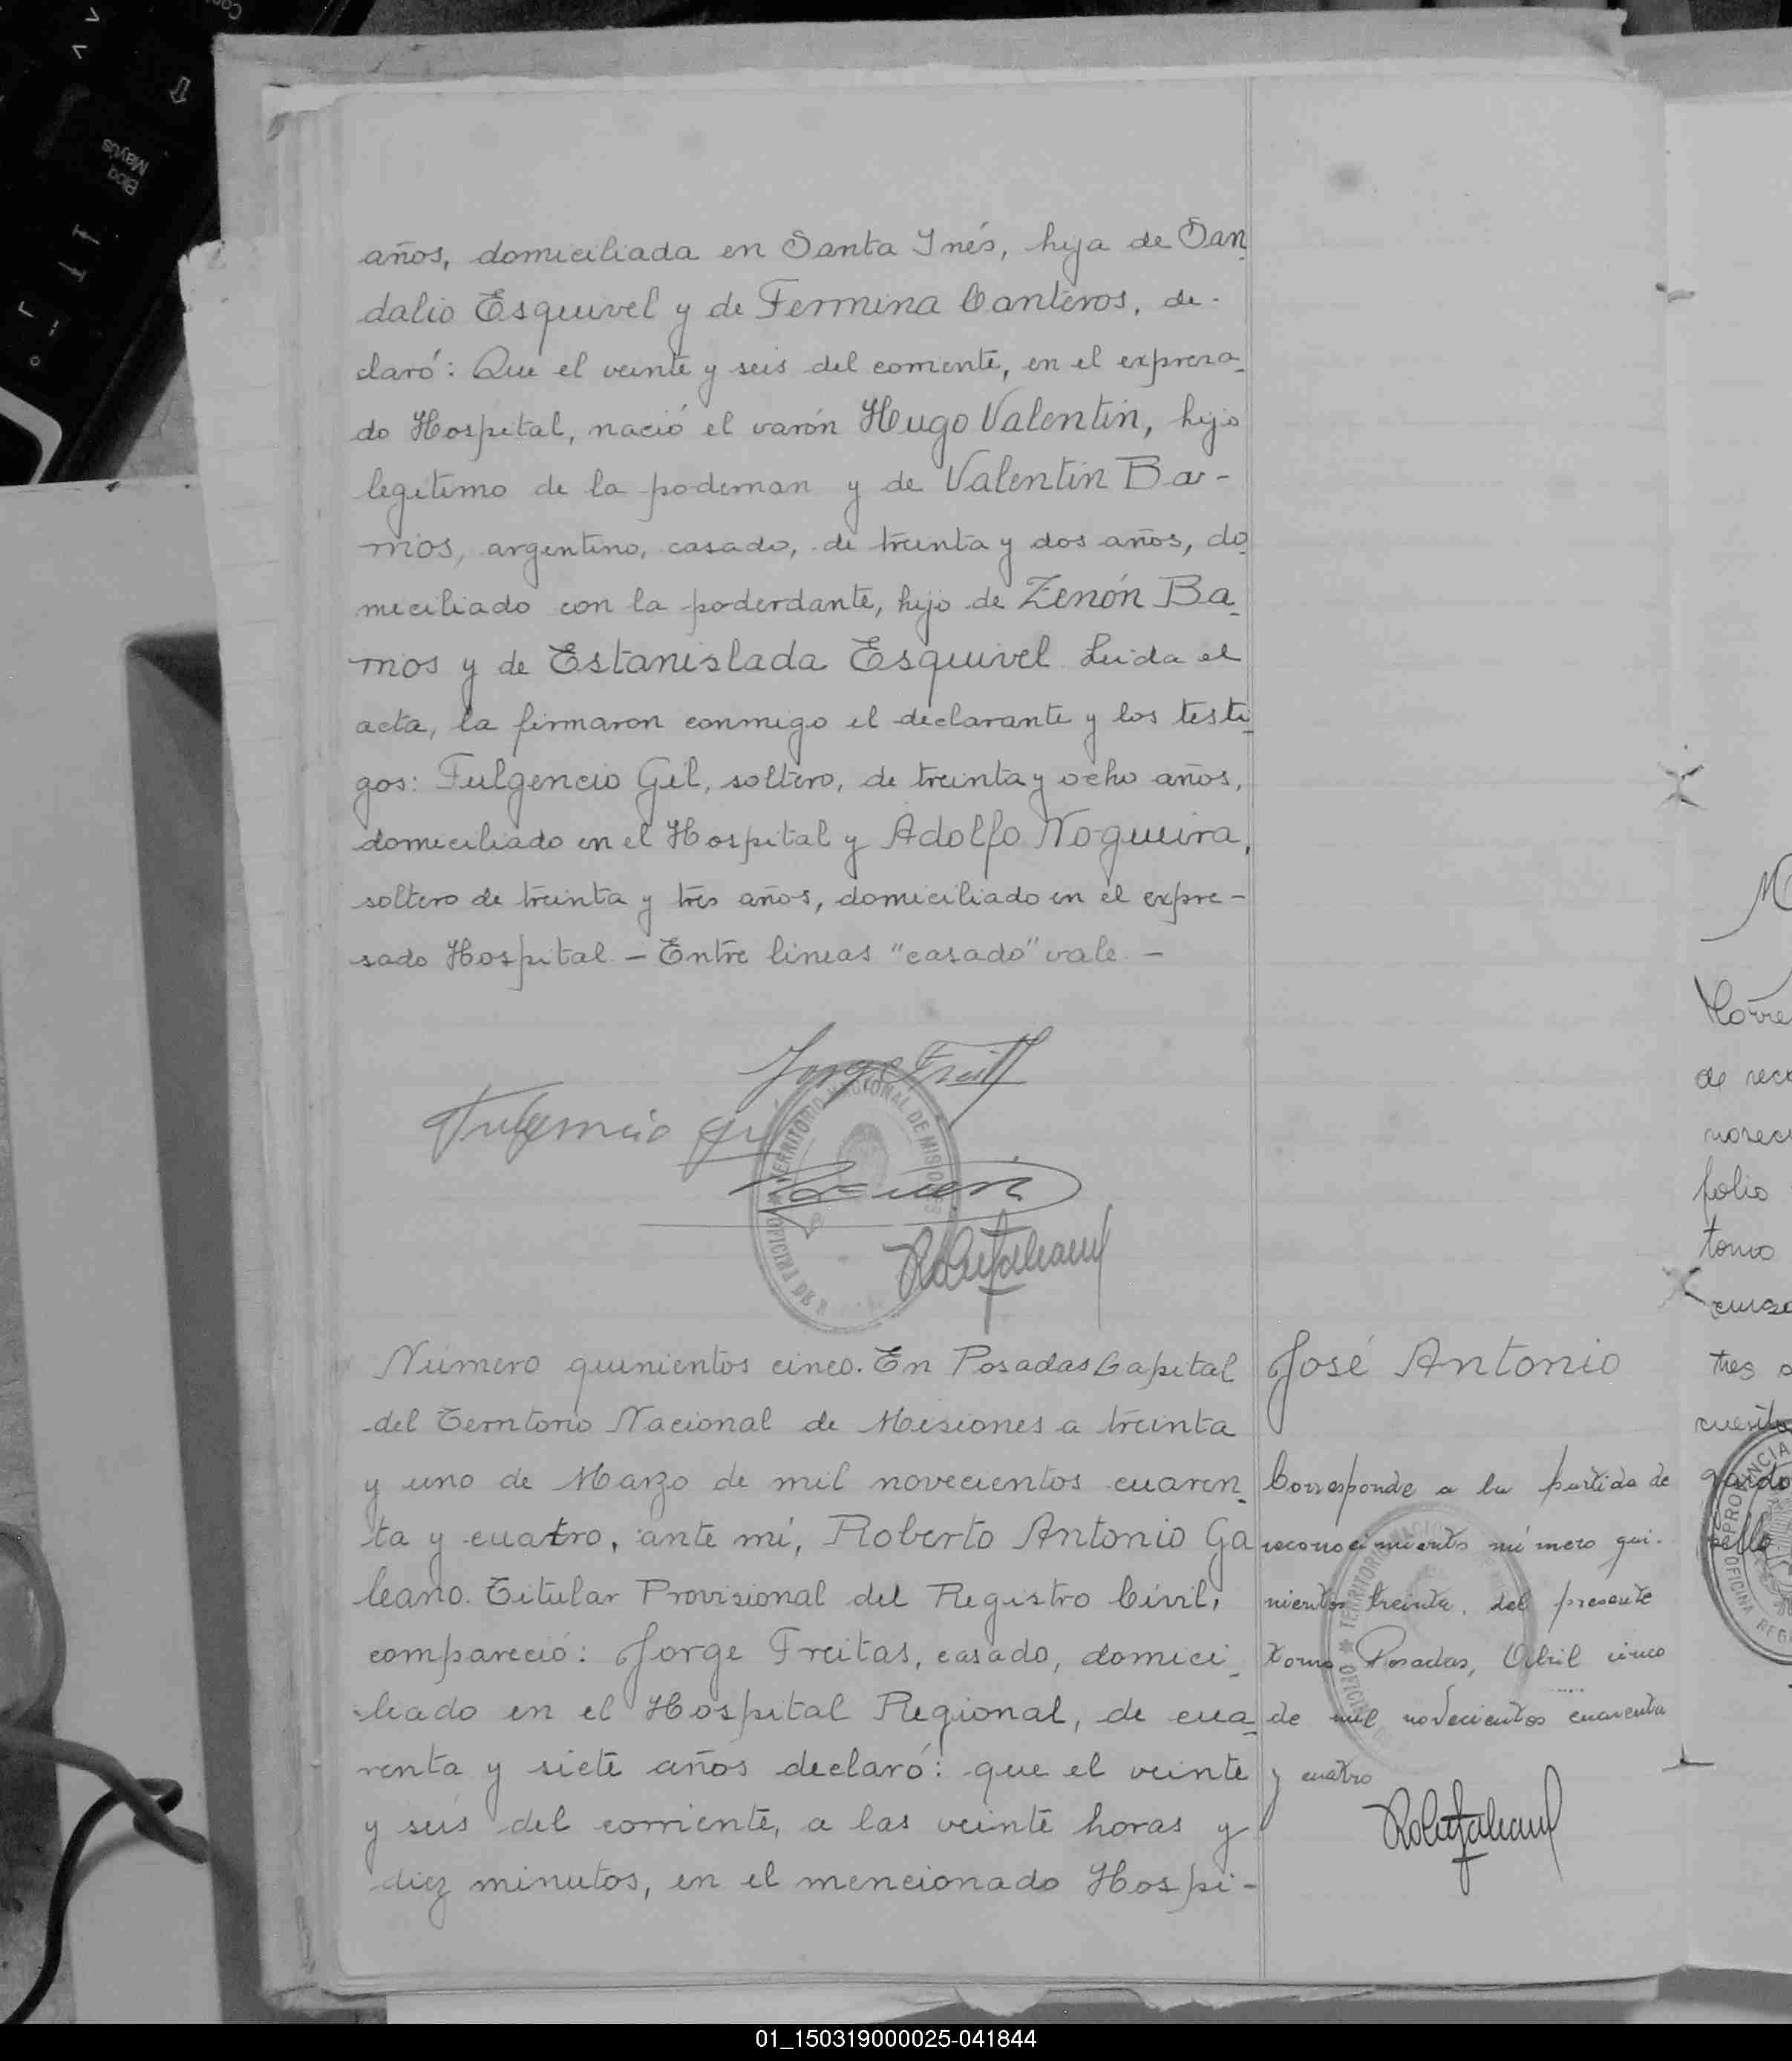 años, domiciliada en Santa Inés, hija de San
dalio Esquivel y de Fermina Canteros, de-
claró: Que el veinte y seis del corriente, en el expresa
do Hospital, nació el varón Hugo Valentín, hijo
legítimo de la poderdan y de Valentín Bar-
rrios, argentino, casado, de treinta y dos años, do
miciliado con la poderdante, hijo de Zenón Ba
rrios y de Estanislada Esquivel. Leida el
acta, la firmaron conmigo el declarante y los testi
gos: Fulgencio Gil, soltero, de treinta y ocho años,
domiciliado en el Hospital y Adolfo Nogueira,
soltero de treinta y tres años, domiciliado en el expre-
sado Hospital - Entre lineas "casado" vale -
Jorge Freitas
Fulgencio Gil
TERRITORIO NACIONAL DE MISIONES
OFICINA DE
Número quinientos cinco. En Posadas Capital
del Territorio Nacional de Misiones a treinta
y uno de Marzo de mil novecientos cuaren
ta y cuatro, ante mí, Roberto Antonio Ga
leano. Titular Provisional del Registro Civil,
compareció: Jorge Freitas, casado, domici
liado en el Hospital Regional, de cua
renta y siete años declaró: que el veinte
y seis del corriente, a las veinte horas y
diez minutos, en el mencionado Hospi-
José Antonio
Corresponde a la partida de
reconocimiento número qui-
nientos treinta, del presente
tomo Posadas, Abril cinco
de mil novecientos cuarenta
y cuatro
Corre
de rec
novec
folio
tomo
tres
Bloq
Mayús
01_150319000025-041844